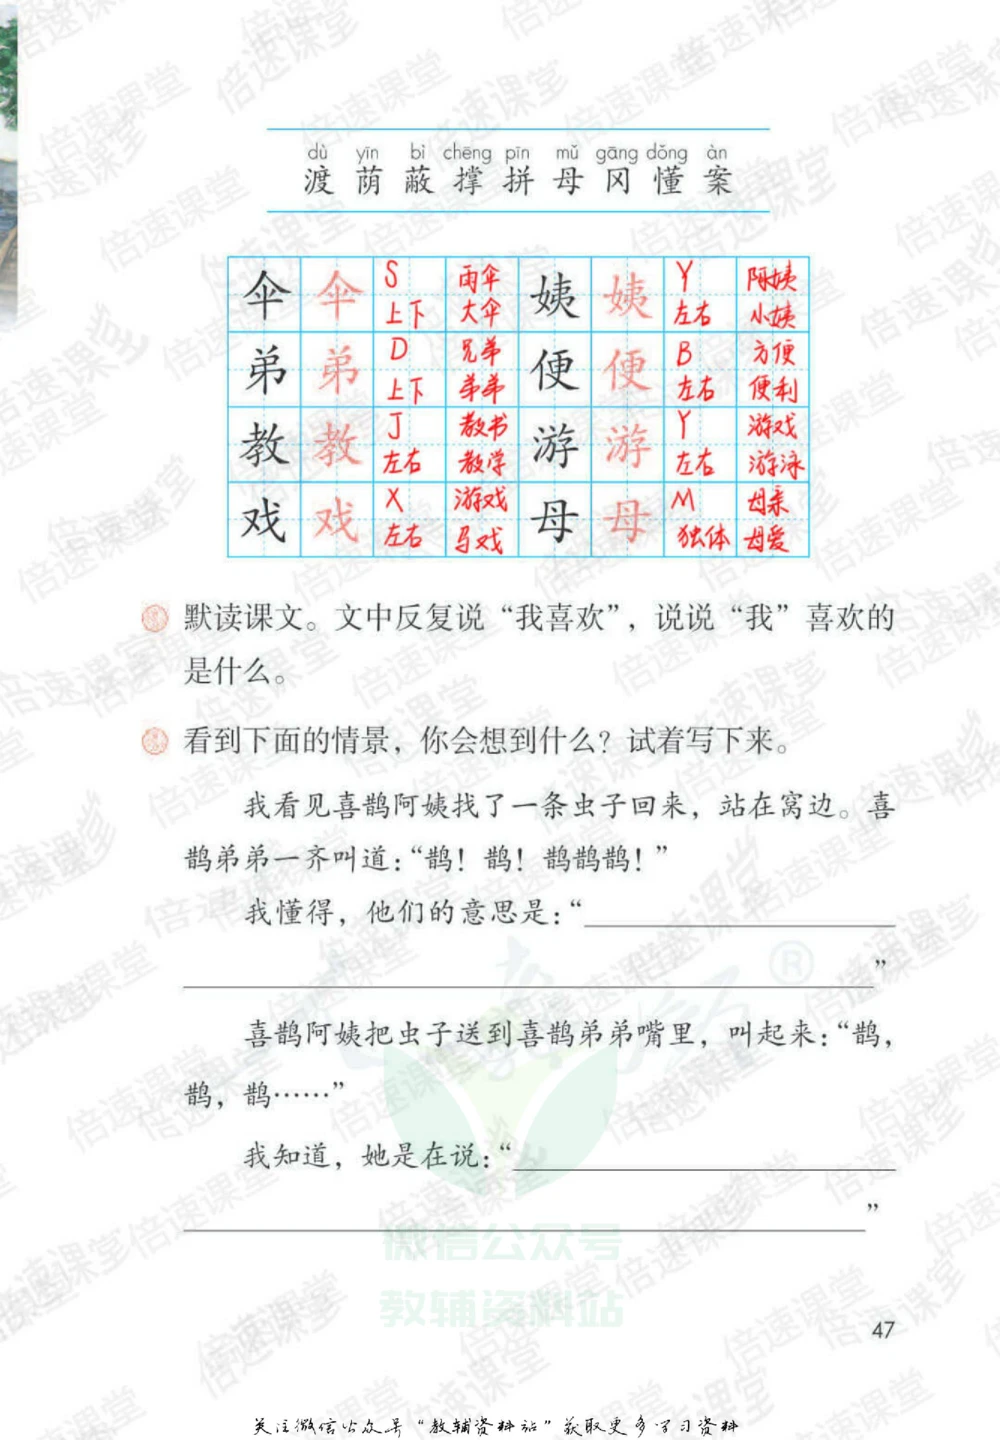 dù yīn bì chēng pīn mǔ gāng dǒng àn
渡 荫 蔽 撑 拼 母 冈 懂 案
伞 伞 S 雨伞 姨 姨 Y 阿姨
上下 大伞 左右 小姨
弟 弟 D 兄弟 便 便 B 方便
上下 弟弟 左右 便利
教 教 J 教书 游 游 Y 游戏
左右 教学 左右 游泳
戏 戏 X 游戏 母 母 M 母亲
左右 马戏 独体 母爱
默读课文。文中反复说“我喜欢”，说说“我”喜欢的
是什么。
看到下面的情景，你会想到什么？试着写下来。
我看见喜鹊阿姨找了一条虫子回来，站在窝边。喜
鹊弟弟一齐叫道：“鹊！鹊！鹊鹊鹊！”
我懂得，他们的意思是：“
”
喜鹊阿姨把虫子送到喜鹊弟弟嘴里，叫起来：“鹊，
鹊，鹊……”
我知道，她是在说：“
”
微信公众号
教辅资料站
47
关注微信公众号“教辅资料站”获取更多学习资料
倍速课堂